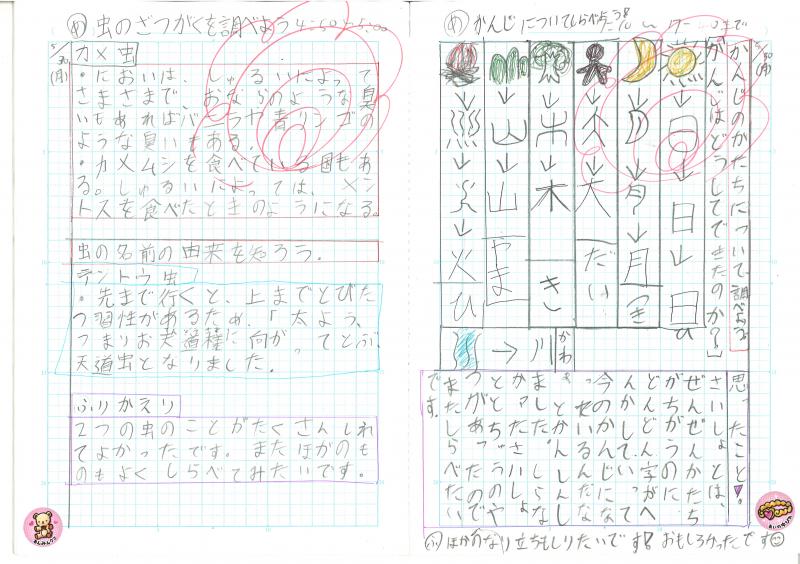 め 虫のざつがくを調べよう 4:50~5:00
5/30(月)
カメ虫
・においは、しゅるいによって
さまざまで、おならのような臭
いもあればバラや青リンゴの
ような臭いもある。
・カメムシを食べている国もあ
る。しゅるいによっては、メン
トスを食べたときのようになる。
虫の名前の由来を知ろう。
テントウ虫
・先まで行くと、上までとびた
つ習性があるため、「太よう、
つまりお天道様に向かってとぶ、
天道虫となりました。
ふりかえり
2つの虫のことがたくさんしれ
てよかったです。またほかのも
のもよくしらべてみたいです。
め かんじについてしらべたう
5/30(月)
かんじのかたちについて調べよう
「かんじはどうしてできたのか?」
日 → 日 → 日 ひ
月 → 月 つき
大 だい
木 → 木 き
山 → 山 やま
火 ひ
→ 川 かわ
思ったこと
さいしょは、
ぜんぜんかたち
がちがうのに
どんどん字がへ
んかしていって
今のかんじにな
っているんだな
とかんしんし
ました。しらな
かったさいしょ
とかたちのや
つがあったので
またしらべたい
です。
ふ ほかのなり立ちもしりたいです! おもしろかったです